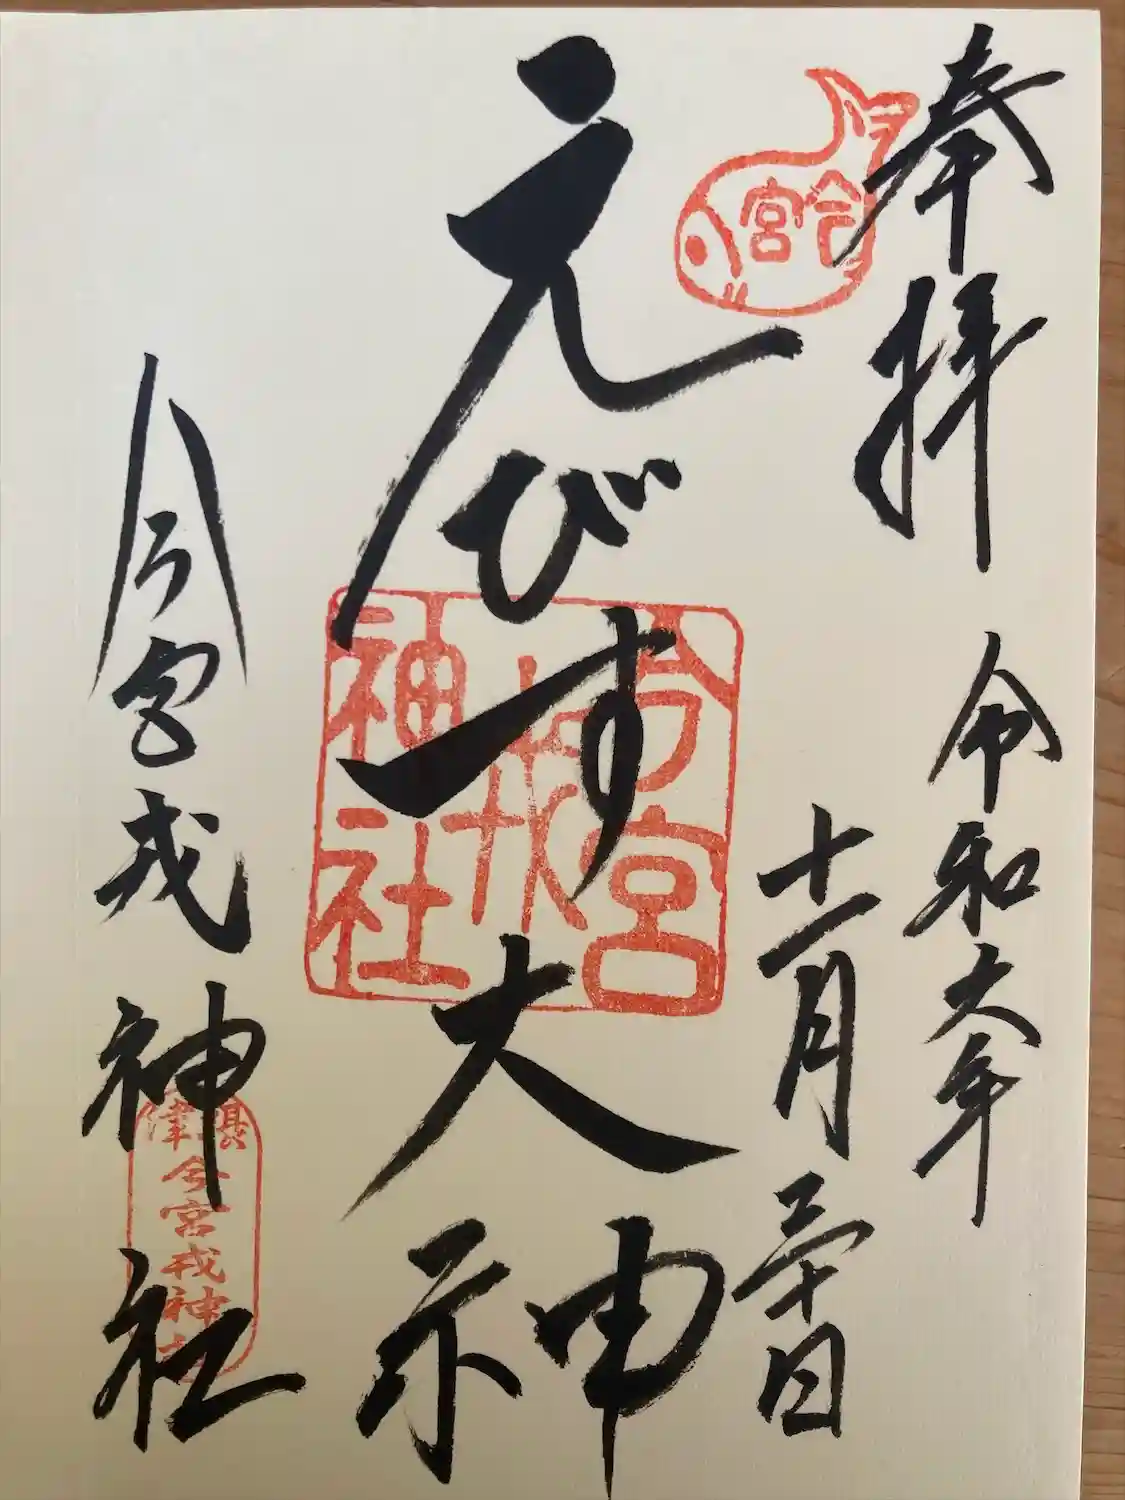 奉拝
令和六年
十一月三十日
今宮
えびす大神
今宮戎神社
今宮戎神社
今宮戎神社